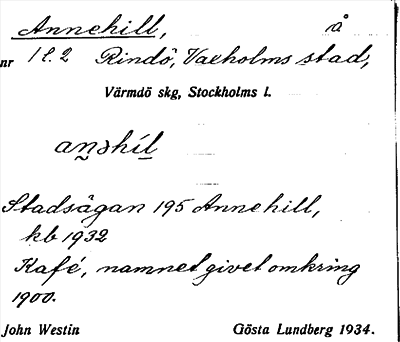 Annehill, å
nr 1 l. 2 Rindö, Vaxholms stad,
Värmdö skg, Stockholms l.
anəhíl
Stadsägan 195 Annehill,
kb 1932
Kafé, namnet givet omkring
1900.
John Westin Gösta Lundberg 1934.